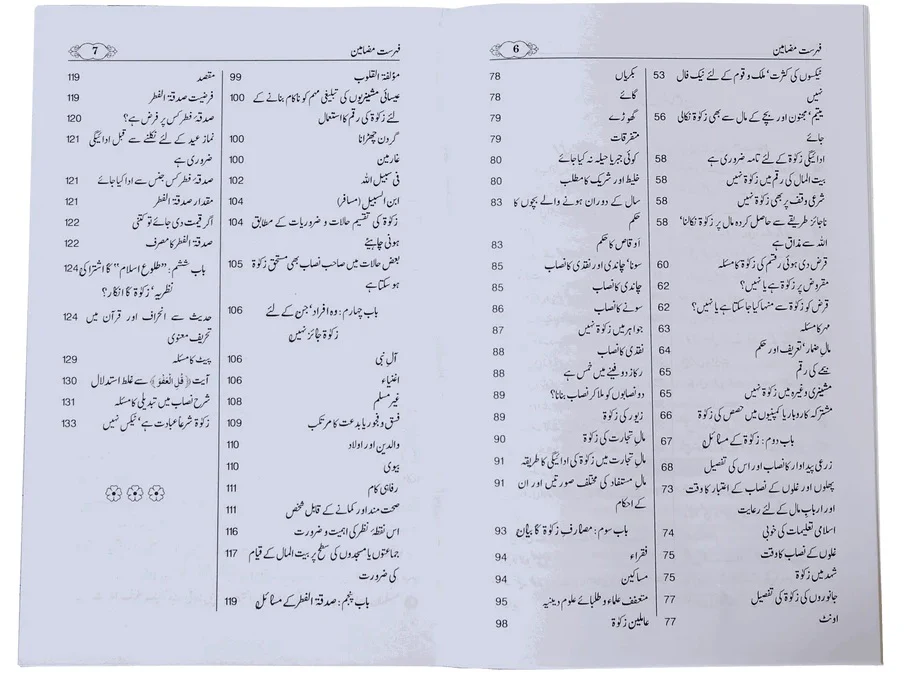 فہرست مضامین
6
ٹیکسوں کی کثرت، ملک و قوم کے لئے نیک فال 53
نہیں
یتیم، مجنون اور بچے کے مال سے بھی زکوٰۃ نکالی 56
جائے
ادائیگی زکوٰۃ کے لئے تامہ ضروری ہے 58
بیت المال کی رقم میں زکوٰۃ نہیں 58
شرعی وقف پر بھی زکوٰۃ نہیں 58
ناجائز طریقے سے حاصل کردہ مال پر زکوٰۃ نکالنا، 58
اللہ سے مذاق ہے
قرض دی ہوئی رقم کی زکوٰۃ کا مسئلہ 60
مقروض پر زکوٰۃ ہے یا نہیں؟ 62
قرض کو زکوٰۃ سے منہا کیا جا سکتا ہے یا نہیں؟ 62
مہر کا مسئلہ 63
مالِ ضمار، تعریف اور حکم 64
بیمے کی رقم 65
مشینری وغیرہ میں زکوٰۃ نہیں 65
مشترکہ کاروبار یا کمپنیوں میں حصص کی زکوٰۃ 66
باب دوم: زکوٰۃ کے مسائل 67
زرعی پیداوار کا نصاب اور اس کی تفصیل 68
پھلوں اور غلوں کے نصاب کے اعتبار کا وقت 73
اور ارباب مال کے لئے رعایت
اسلامی تعلیمات کی خوبی 74
غلوں کے نصاب کا وقت 75
شہد میں زکوٰۃ 75
جانوروں کی زکوٰۃ کی تفصیل 77
اونٹ 77
بکریاں 78
گائے 78
گھوڑے 79
متفرقات 79
کوئی جبر یا حیلہ نہ کیا جائے 80
خلیط اور شریک کا مطلب 80
سال کے دوران ہونے والے بچوں کا 83
حکم
اَوقاص کا حکم 83
سونا، چاندی اور نقدی کا نصاب 85
چاندی کا نصاب 85
سونے کا نصاب 86
جواہر میں زکوٰۃ نہیں 87
نقدی کا نصاب 88
رکاز و دفینے میں خمس ہے 88
دو نصابوں کو ملا کر نصاب بنانا؟ 89
زیور کی زکوٰۃ 89
مالِ تجارت کی زکوٰۃ 90
مالِ تجارت میں زکوٰۃ کی ادائیگی کا طریقہ 91
مال مستفاد کی مختلف صورتیں اور ان 91
کے احکام
باب سوم: مصارفِ زکوٰۃ کا بیان 93
فقراء 94
مساکین 94
متعفف علماء و طلبائے علوم دینیہ 95
عاملین زکوٰۃ 98
فہرست مضامین
7
مؤلفۃ القلوب 99
عیسائی مشینریوں کی تبلیغی مہم کو ناکام بنانے کے 100
لئے زکوٰۃ کی رقم کا استعمال
گردن چھڑانا 100
غارمین 100
فی سبیل اللہ 102
ابن السبیل (مسافر) 104
زکوٰۃ کی تقسیم حالات و ضروریات کے مطابق 104
ہونی چاہیئے
بعض حالات میں صاحب نصاب بھی مستحق زکوٰۃ 105
ہو سکتا ہے
باب چہارم: وہ افراد، جن کے لئے 106
زکوٰۃ جائز نہیں
آلِ نبی 106
اغنیاء 106
غیر مسلم 108
فسق و فجور یا بدعت کا مرتکب 109
والدین اور اولاد 110
بیوی 110
رفاہی کام 111
صحت مند اور کمانے کے قابل شخص 111
اس نقطۂ نظر کی اہمیت و ضرورت 116
جماعتوں یا مسجدوں کی سطح پر بیت المال کے قیام 117
کی ضرورت
باب پنجم: صدقۃ الفطر کے مسائل 119
مقصد 119
فرضیت صدقۃ الفطر 119
صدقۂ فطر کس پر فرض ہے؟ 120
نماز عید کے لئے نکلنے سے قبل ادائیگی 121
ضروری ہے
صدقۂ فطر کس جنس سے ادا کیا جائے 121
مقدار صدقۃ الفطر 121
اگر قیمت دی جائے تو کتنی 122
صدقۃ الفطر کا مصرف 122
باب ششم: "طلوع اسلام" کا اشتراکی 124
نظریہ، زکوٰۃ کا انکار؟
حدیث سے انحراف اور قرآن میں 124
تحریف معنوی
پیٹ کا مسئلہ 129
آیت ﴿قُلِ الْعَفْوَ﴾ سے غلط استدلال 130
شرح نصاب میں تبدیلی کا مسئلہ 131
زکوٰۃ شرعاً عبادت ہے، ٹیکس نہیں 133